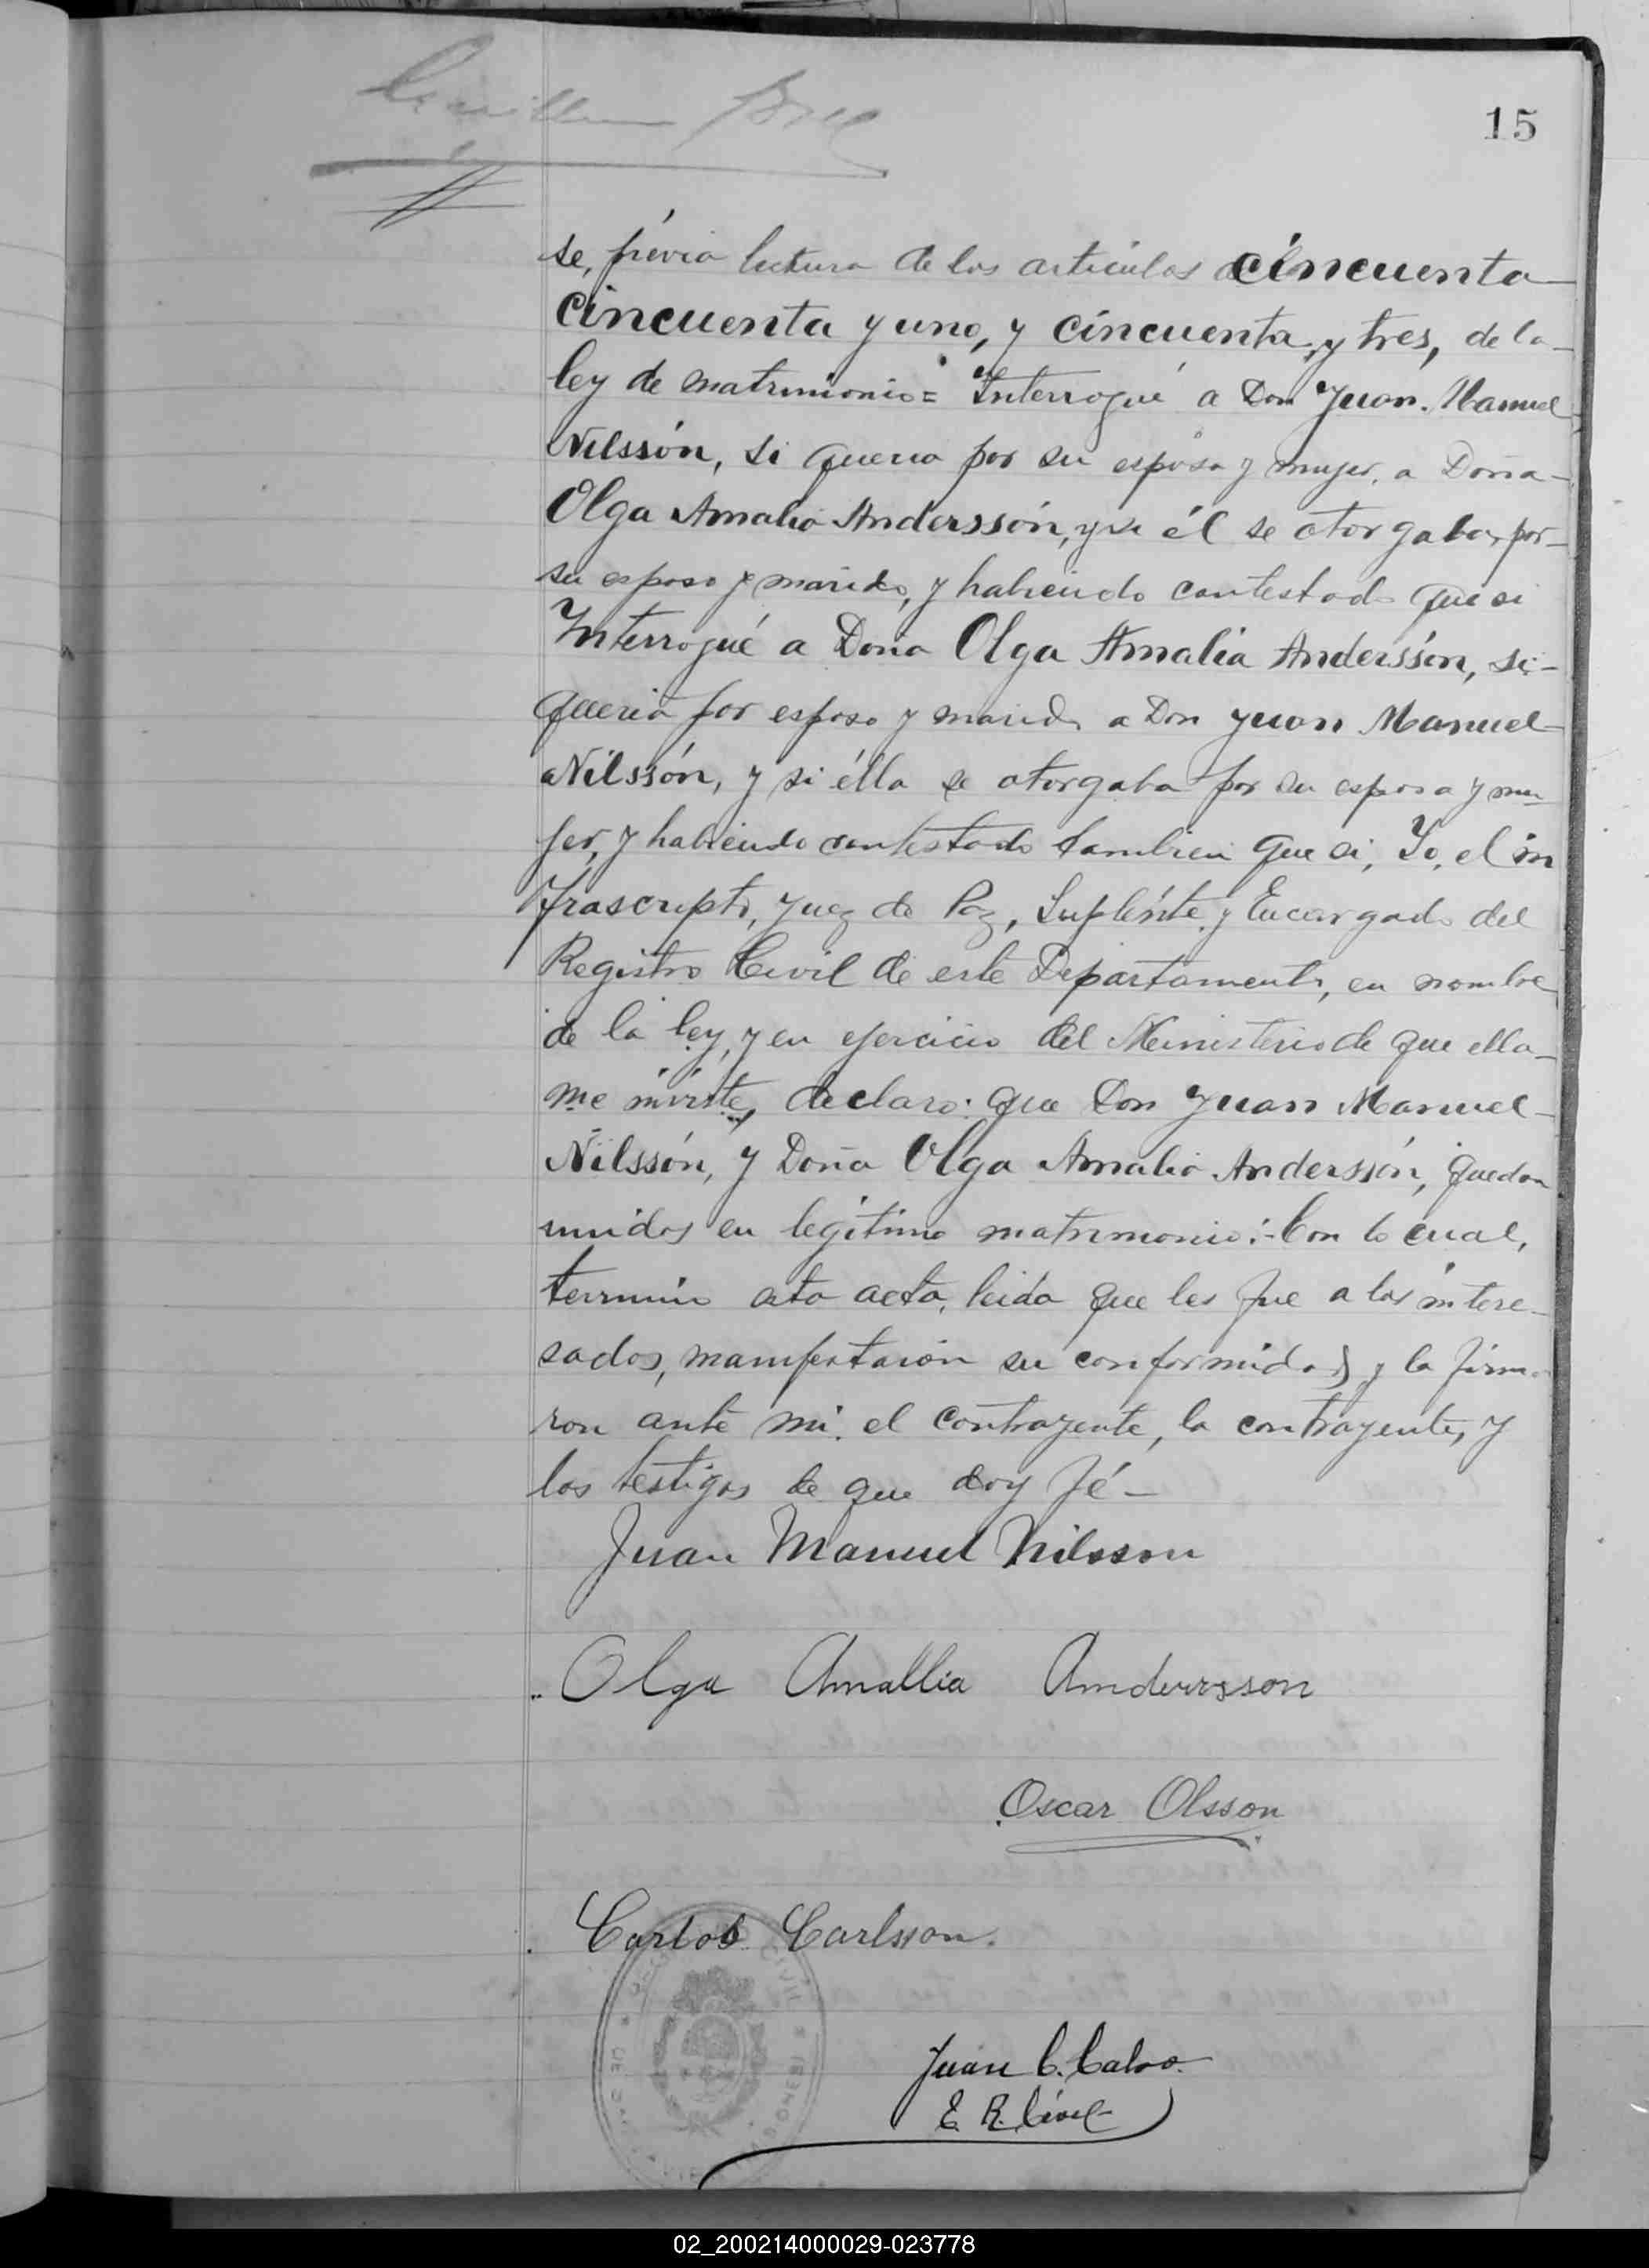 15
se, prévia lectura de los articulos cincuenta
cincuenta y uno, y cincuenta y tres, de la
ley de matrimonio= Interrogué a Don Juan Manuel
Nilssón, si queria por su esposa y mujer, a Doña
Olga Amalia Anderssón, y si él se otorgaba, por
su esposo y marido, y habiendo contestado que si
Interrogué a Doña Olga Amalia Anderssón, si
queria por esposo y marido a Don Juan Manuel
Nilssón, y si élla se otorgaba por su esposa y mu
jer, y habiendo contestado tambien que si, Yo, el in
frascripto, Juez de Paz, Suplénte y Encargado del
Registro Civil de este Departamento, en nombre
de la ley, y en ejercicio del Ministerio de que ella
me inviste, declaro: que Don Juan Manuel
Nilssón, y Doña Olga Amalia Anderssón, quedan
unidos en legitimo matrimonio:- Con lo cual,
termino esta acta, leida que les fue a los intere-
sados, manifestaron su conformidad y la firma
ron ante mi. el contrayente, la contrayente, y
los testigos de que doy fé-
Juan Manuel Nilsson
Olga Amallia Andersson
Oscar Olsson
Carlos Carlsson.
Juan C. Calvo.
E. R. Civil
02_200214000029-023778